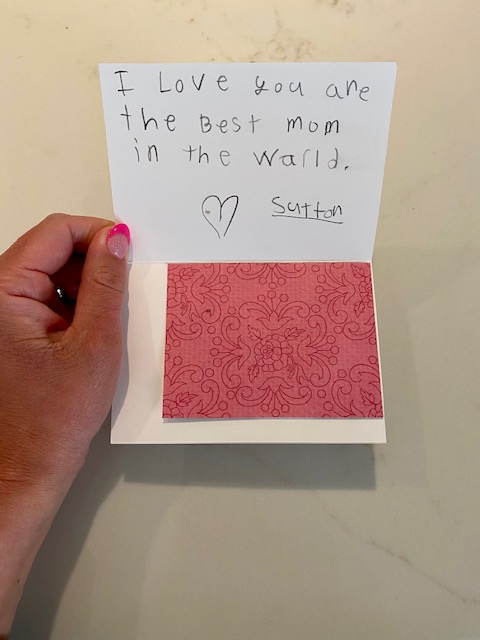 I Love you are
the Best mom
in the warld.
Sutton